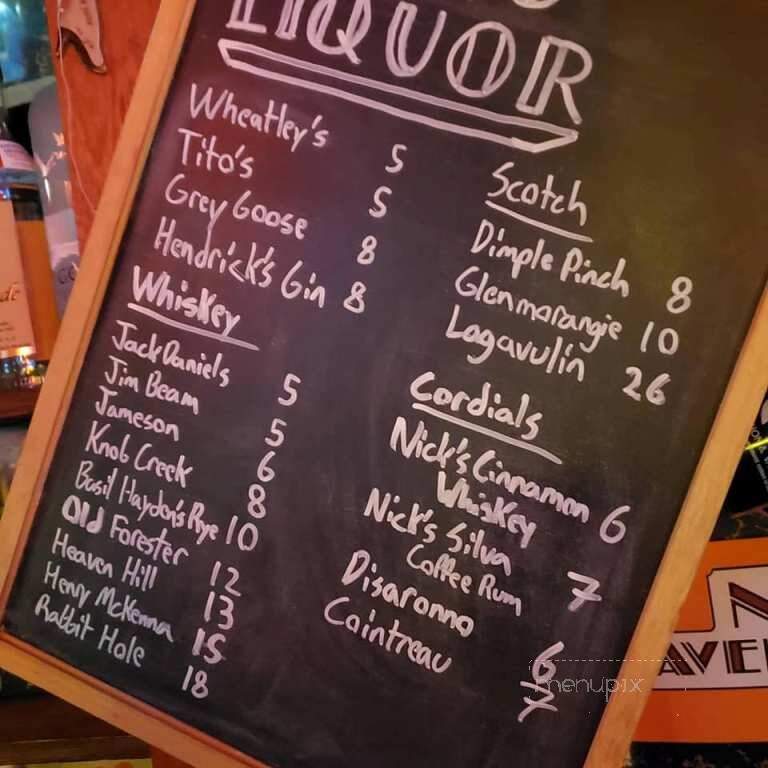 LIQUOR
Wheatley's 5
Tito's 5
Grey Goose 8
Hendrick's Gin 8
Whiskey
Jack Daniels 5
Jim Beam 5
Jameson 6
Knob Creek 8
Basil Hayden's Rye 10
Old Forester 12
Heaven Hill 13
Henry McKenna 15
Rabbit Hole 18
Scotch
Dimple Pinch 8
Glenmorangie 10
Lagavulin 26
Cordials
Nick's Cinnamon 6
Whiskey
Nick's Silva
Coffee Rum 7
Disaronno 6
Cointreau 7
menupix